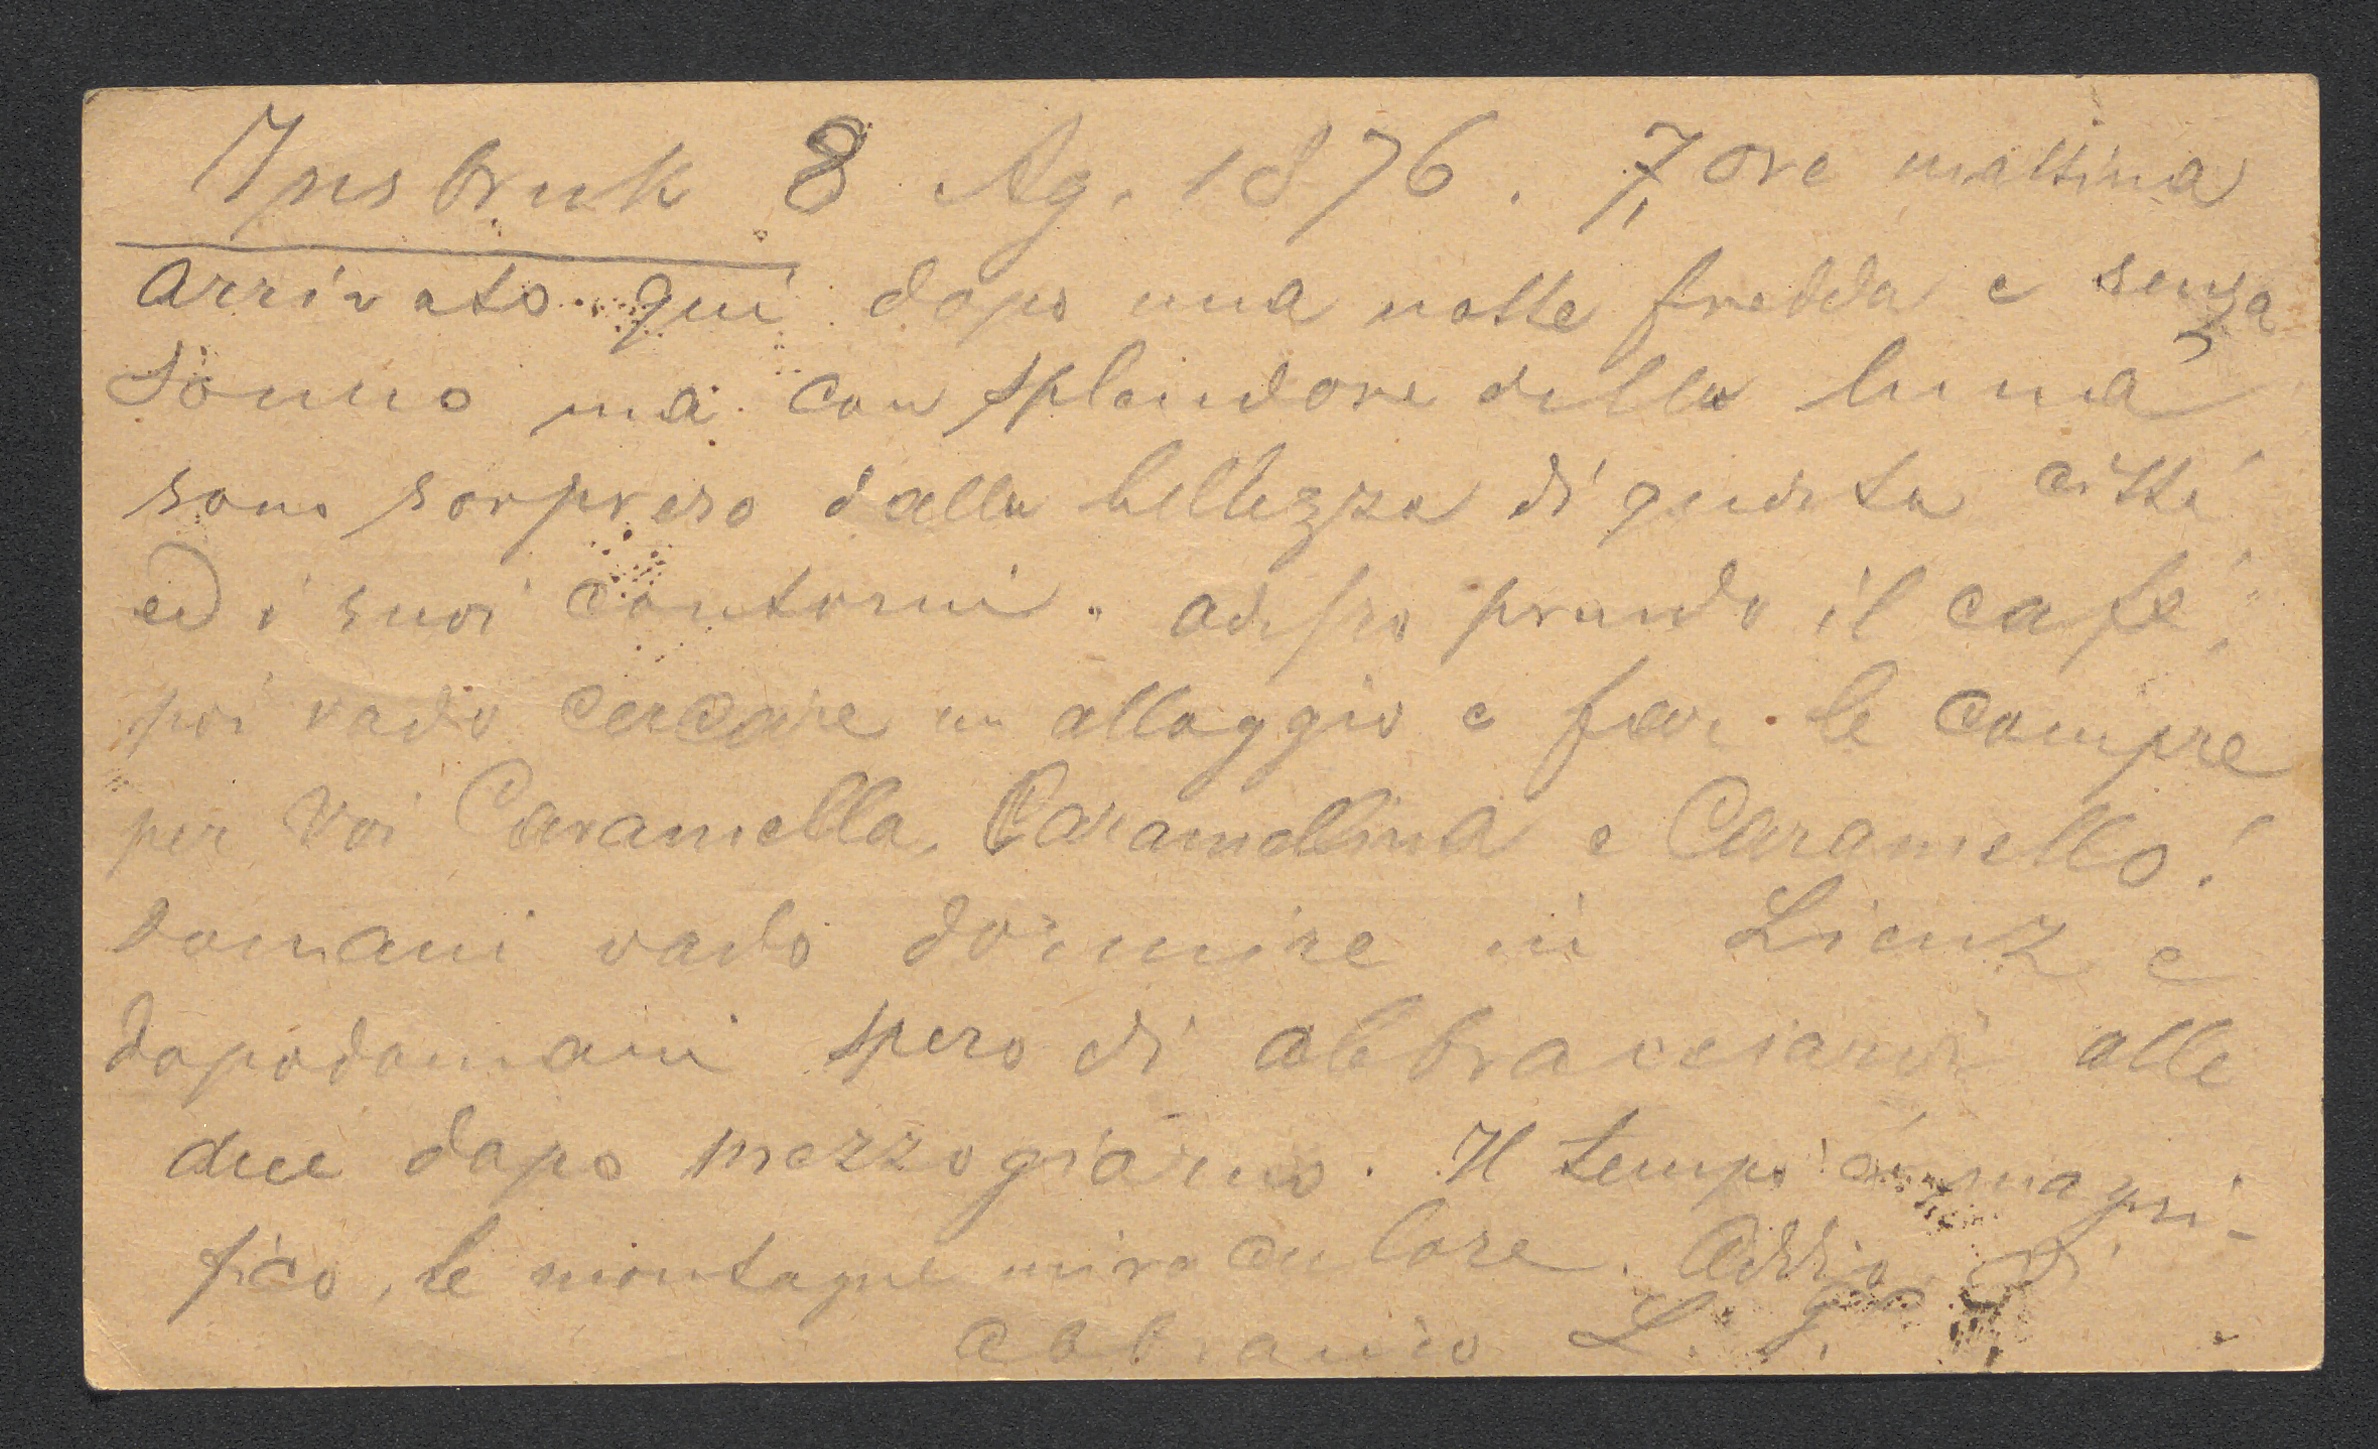 Ynsbruk 8 Ag. 1876. 7, ore mattina
arrivato qui dopo una notte fredda e senza
sonno ma con splendore della luna
sono sorpreso dalla bellezza di questa cittá
ed i suoi contorni. adesso prendo il café,
poi vado cercare un alloggio e far le compre
per voi Caramella, Caramellina e Caramello!
domani vado dormire in Lienz e
dopodomani spero di abbracciarvi alle
due dopo mezzogiorno. Il tempo é magni-
fico, le montagne miracolose. Addio
abbraccio L. G.